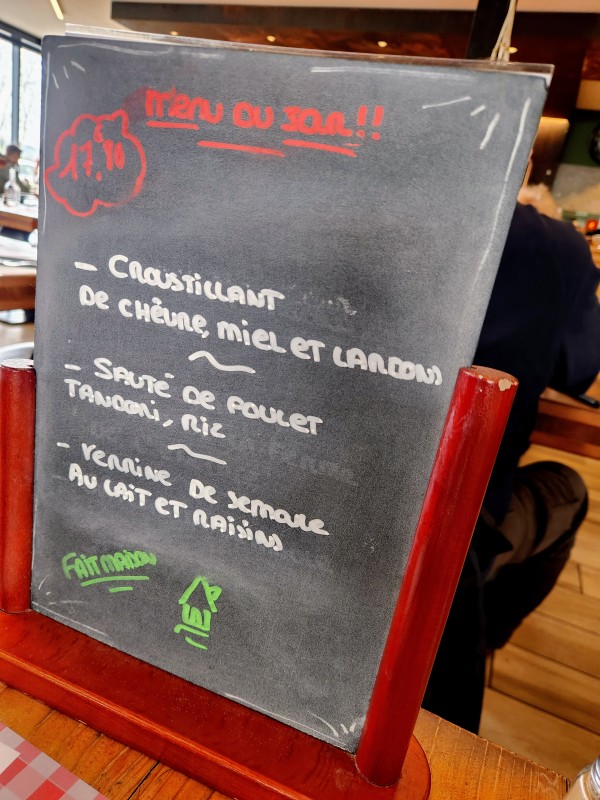 Menu du jour!!
17,90 €
- Croustillant
de chèvre, miel et lardons
~
- Sauté de poulet
tandori, riz
~
- Verrine de semoule
au lait et raisins
Fait maison